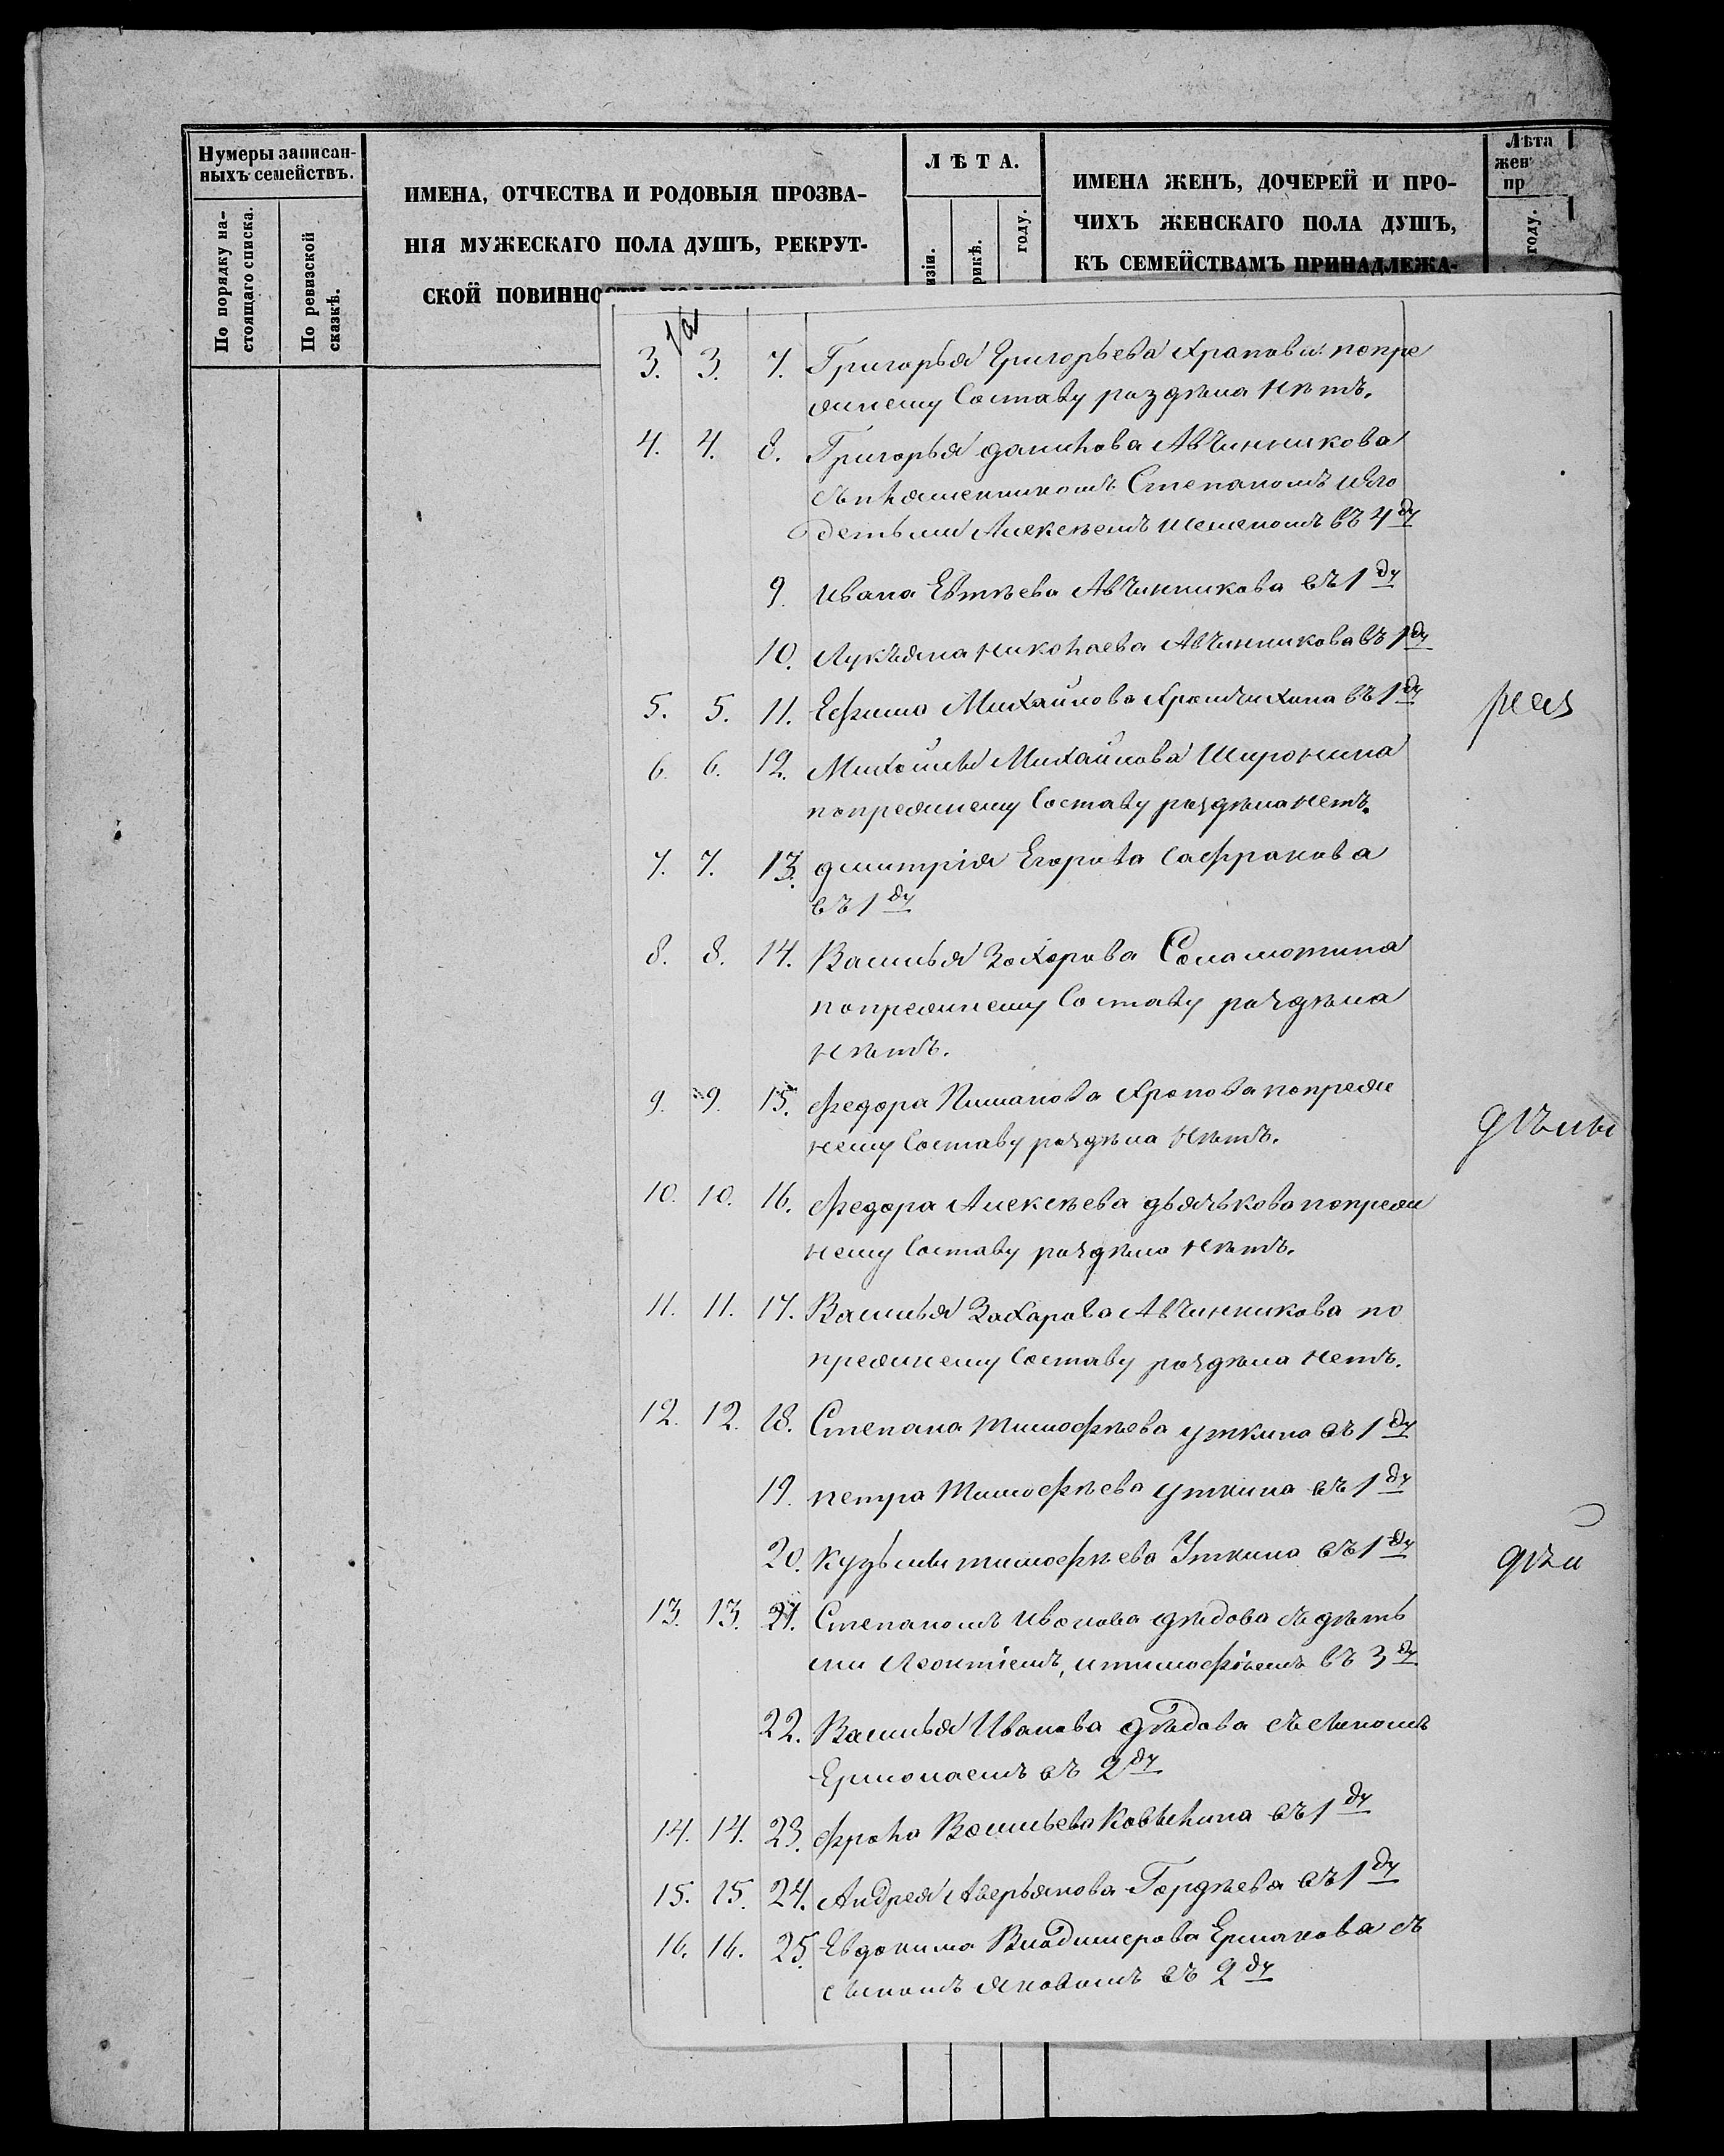 Нумеры записан-
ныхъ семействъ.
По порядку на-
стоящаго списка.
По ревизской
сказкѣ.
ИМЕНА, ОТЧЕСТВА И РОДОВЫЯ ПРОЗВА-
НІЯ МУЖЕСКАГО ПОЛА ДУШЪ, РЕКРУТ-
СКОЙ ПОВИННОСТИ
ЛѢТА.
изіи.
рикѣ.
году.
ИМЕНА ЖЕНЪ, ДОЧЕРЕЙ И ПРО-
ЧИХЪ ЖЕНСКАГО ПОЛА ДУШЪ,
КЪ СЕМЕЙСТВАМЪ ПРИНАДЛЕЖА-
Лѣта
жен
пр
году.
3. 3. 7. Григорья Григорьева Храпова попре
жнему составу раздѣла нѣтъ.
4. 4. 8. Григорья данилова Авчинникова
съ племенникомъ Степаномъ и его
детьми Алексѣемъ и семеномъ въ 4 ду
9. Ивана Евтѣева Авчинникова въ 1 ду
10. Лукьяна николаева Авчинникова въ 1 ду
5. 5. 11. Ефима Михайлова въ 1 ду
6. 6. 12. Михайлы Михайлова Широнина
попрежнему составу раздѣла нетъ.
7. 7. 13. дмитрія Егорова Сафронова
въ 1 ду
8. 8. 14. Василья Захарова Соламотина
попрежнему составу раздѣла
нѣтъ.
9. 9. 15. Федора Пиманова Храпова попреж
нему составу раздѣла нѣтъ.
10. 10. 16. Федора Алексѣева дьячькова попреж
нему составу раздѣла нѣтъ.
11. 11. 17. Василья Захарова Авчинникова по
прежнему составу раздѣла нетъ.
12. 12. 18. Степана Тимофѣева уткина въ 1 ду
19. петра Тимофѣева уткина въ 1 ду
20. кузьмы тимофѣева Уткина въ 1 ду
13. 13. 21. Степаномъ Иванова дѣдова съ дѣть
ми Леонтіемъ, и тимофѣемъ въ 3 ду
22. Василья Иванова дѣдова съ сыномъ
Ермолаемъ въ 2 ду
14. 14. 23. фрола Васильева Ковылина въ 1 ду
15. 15. 24. Андрея Аверьянова Гордѣева въ 1 ду
16. 16. 25. Евдокима Владимерова Ермакова съ
сыномъ яковомъ въ 2 ду
дѣлы